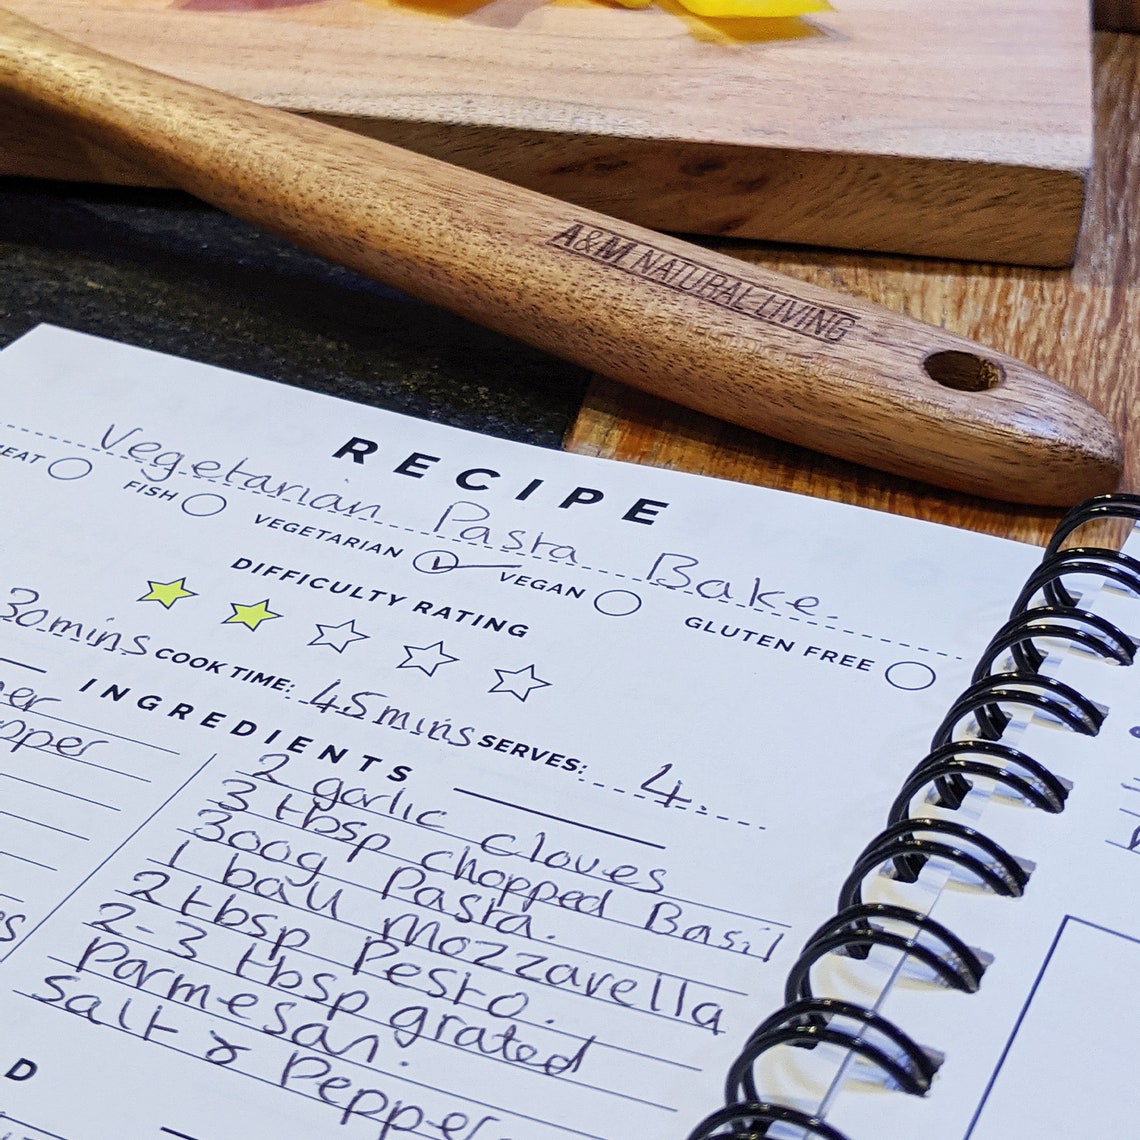 A&M NATURAL LIVING
RECIPE
Vegetarian Pasta Bake.
FISH VEGETARIAN VEGAN GLUTEN FREE
DIFFICULTY RATING
30mins COOK TIME: 45mins SERVES: 4.
INGREDIENTS
2 garlic cloves
3 tbsp chopped Basil
300g Pasta.
1 ball Mozzarella
2 tbsp Pesto.
2-3 tbsp grated
Parmesan.
Salt & Pepper
D